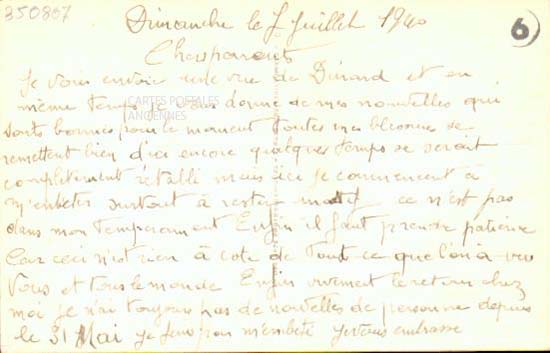 350807
6
Dimanche le 7 Juillet 1940
Chers parents
Je vous envoie une vue de Dinard et en
même temps je vous donne de mes nouvelles qui
sont bonnes pour le moment toutes mes blessures se
remettent bien d'ici encore quelques temps se serait
complètement rétabli mais ici je commencent à
m'enbeter surtout à rester ce n'est pas
dans mon temperament Enfin il faut prendre patience
Car ceci n'est rien à côte de tout ce que l'on à vu
Vous et tous le monde Enfin vivement le retour chez
moi je n'ai toujours pas de nouvelles de personne depuis
le 31 Mai je m'embete je vous embrasse
CARTES POSTALES
ANCIENNES